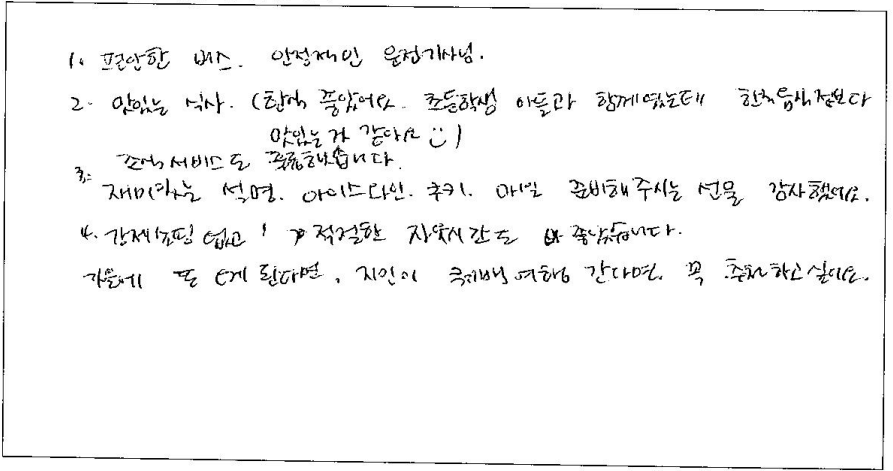 1. 편안한 버스. 안정적인 운전기사님.
2. 맛있는 식사. (한식 좋았어요. 초등학생 아들과 함께였는데 한국음식점보다
맛있는거 같아요 :)
3. 조식 서비스도 훌륭했습니다.
재미있는 설명. 아이스와인. 쿠키. 매일 준비해주시는 선물 감사했어요.
4. 강제쇼핑 없고 적절한 자유시간도 좋았습니다.
가을에 또 오게 된다면, 지인이 퀘벡여행 간다면, 꼭 추천하고 싶어요.